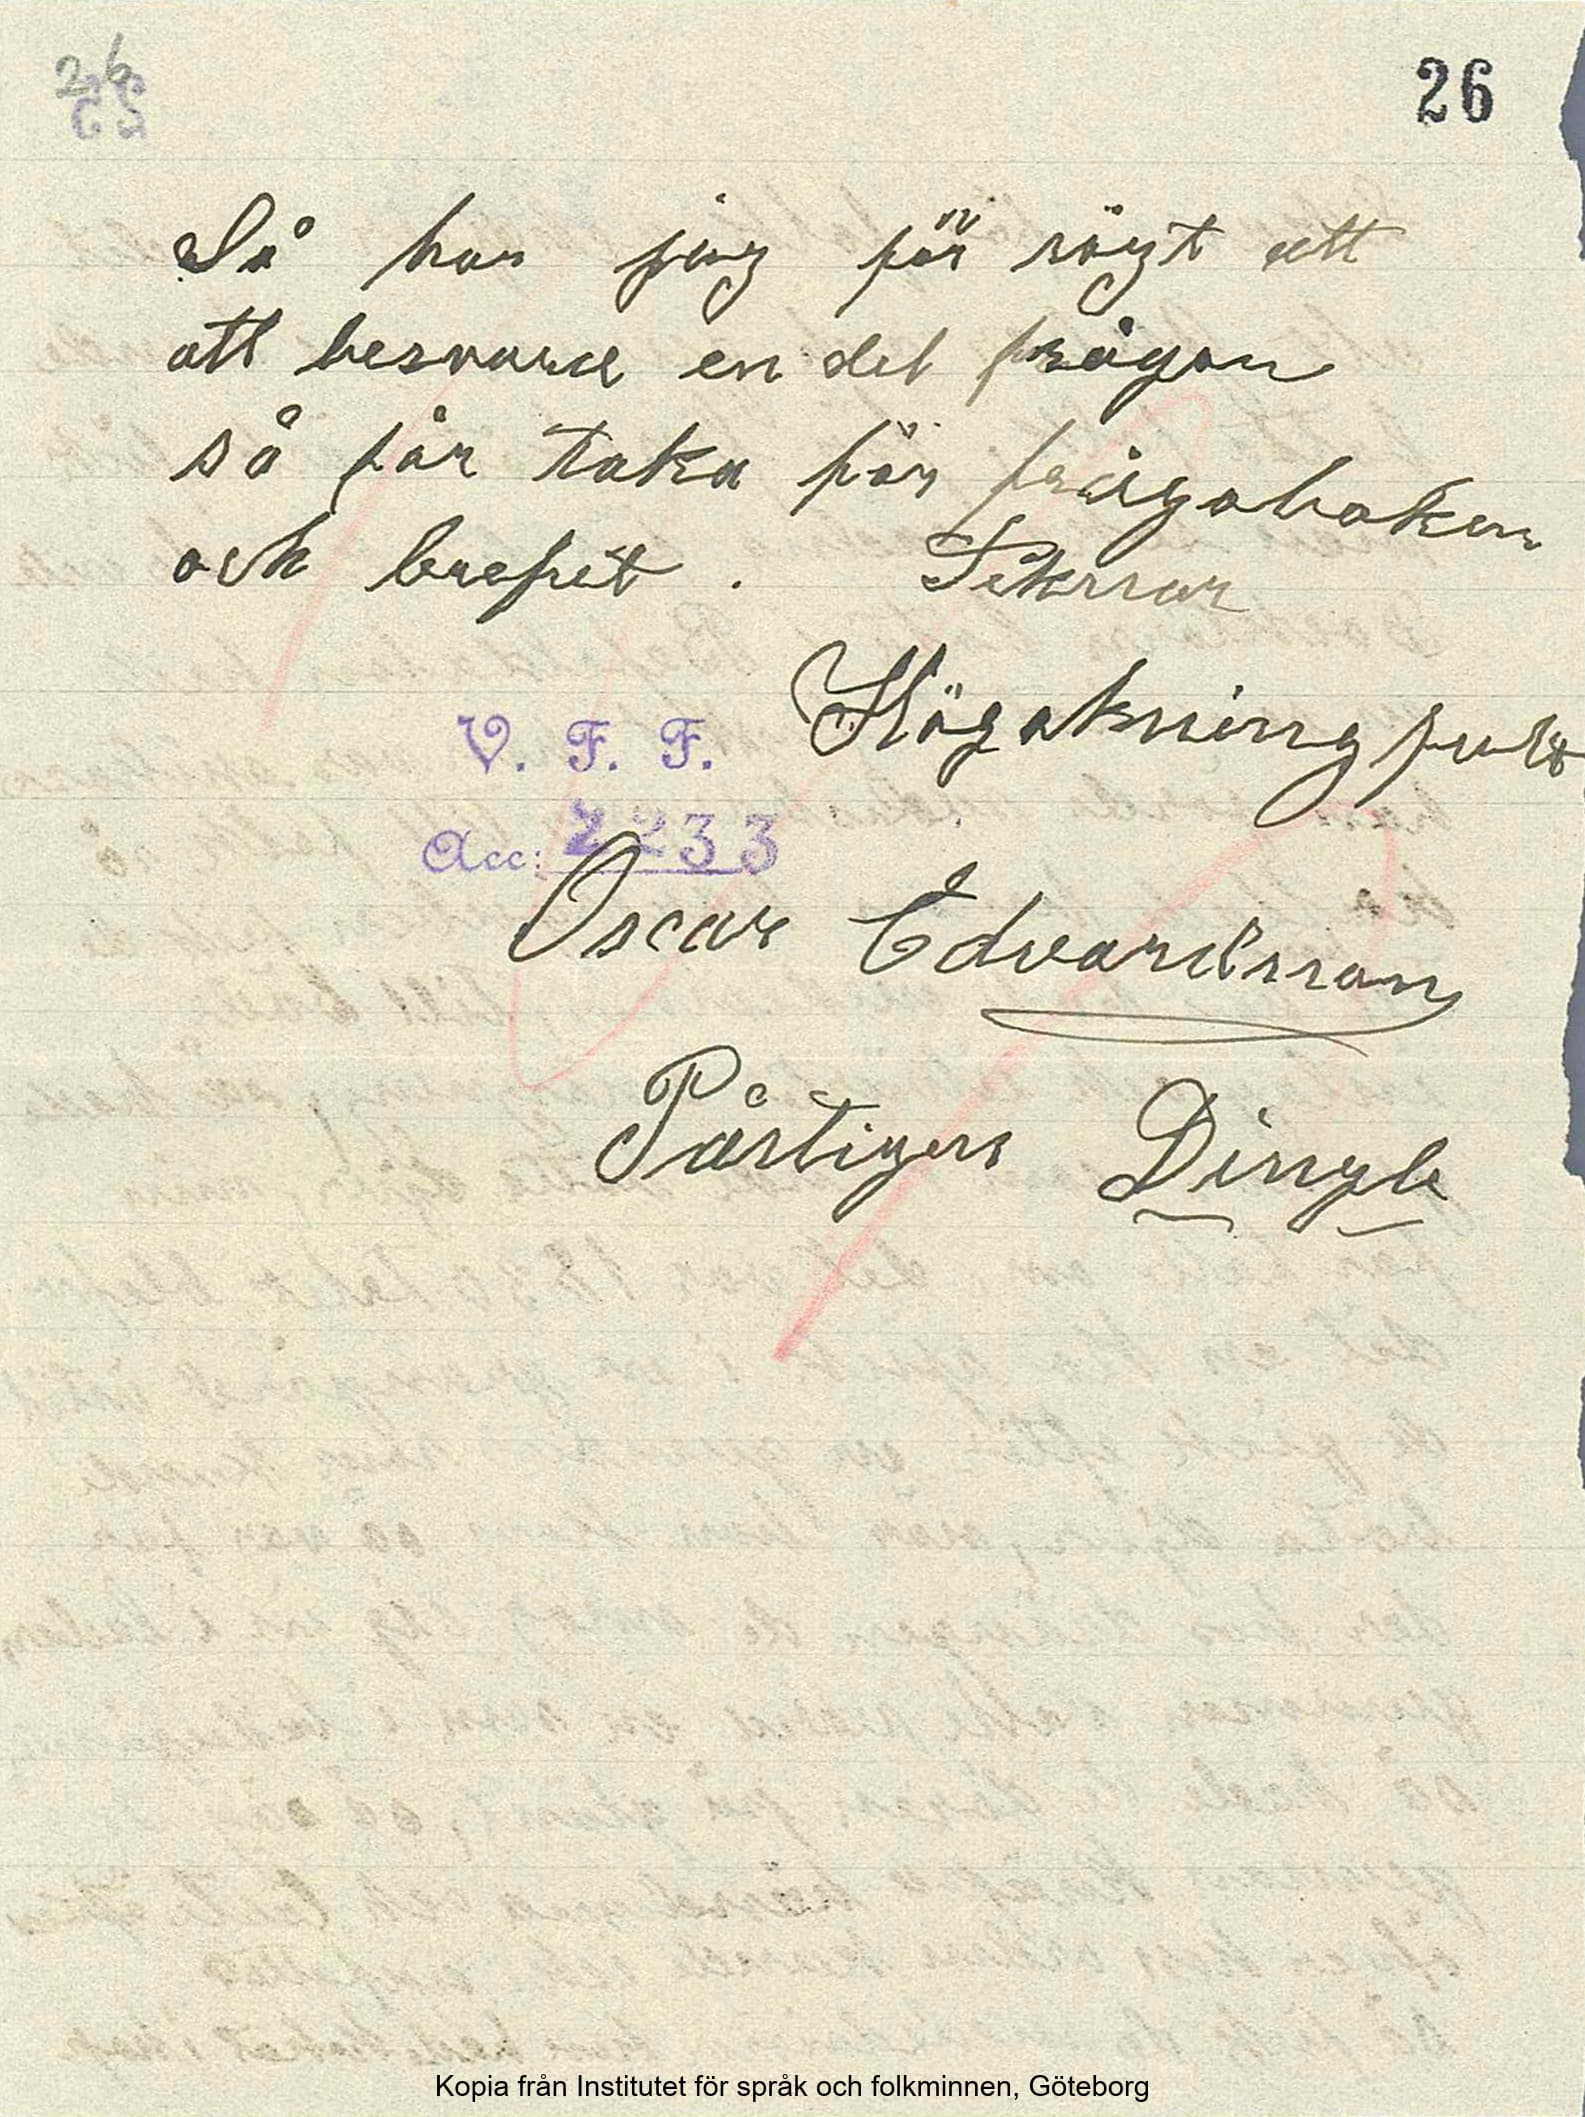 26
26
Så har jag för sögt att
att besvara en del frågor
så får taka för frågaboken
och brefvet. Teknar
Högakning fullt
V. F. F.
Acc: 2233
Oscar Edvardsson
Påstigen Dingle
Kopia från Institutet för språk och folkminnen, Göteborg